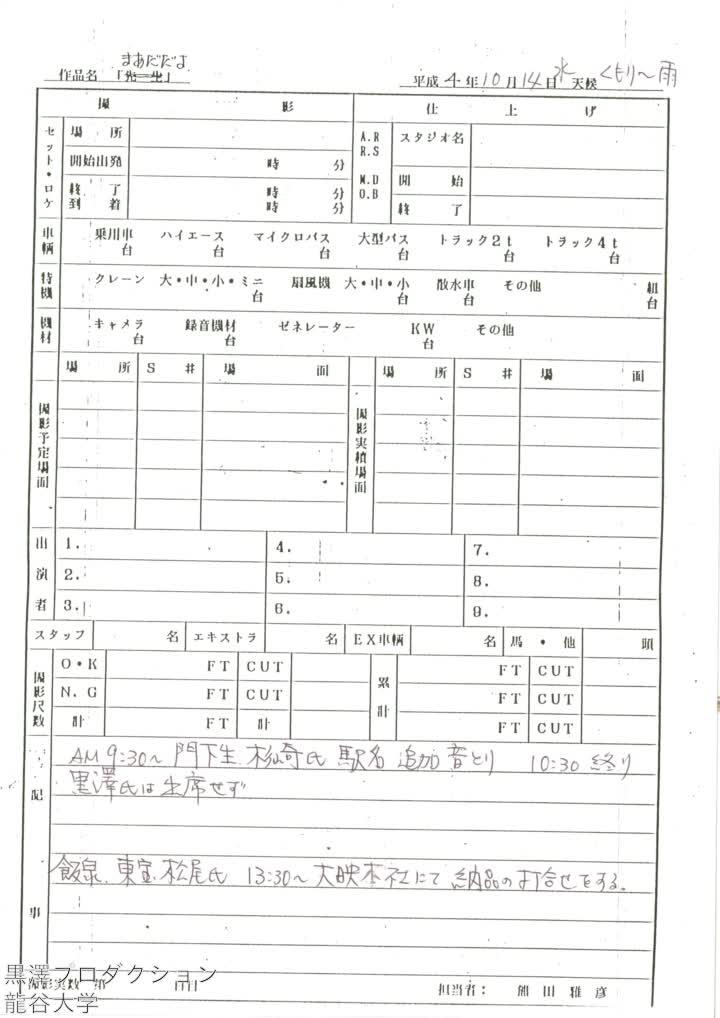 まあだだよ
作品名 「先生」 平成 4 年 10 月 14 日 水 天候 くもり〜雨
撮 影 仕 上 げ
セット・ロケ 場 所 A.R R.S M.D O.B スタジオ名
開始出発 時 分 開 始
終 了 時 分 終 了
到 着 時 分
車輌 乗用車 台 ハイエース 台 マイクロバス 台 大型バス 台 トラック2t 台 トラック4t 台
特機 クレーン 大・中・小・ミニ 台 扇風機 大・中・小 台 散水車 台 その他 組 台
機材 キャメラ 台 録音機材 台 ゼネレーター KW 台 その他
撮影予定場面 場 所 S # 場 面 撮影実績場面 場 所 S # 場 面
出演者 1. 4. 7.
2. 5. 8.
3. 6. 9.
スタッフ 名 エキストラ 名 EX車輌 名 馬・他 頭
撮影尺数 O・K FT CUT 累計 FT CUT
N.G FT CUT FT CUT
計 FT 計 FT CUT
記事
AM 9:30〜 門下生 杉崎氏 駅名 追加 音とり 10:30 終り
黒澤氏は出席せず
飯泉、東宝、松尾氏 13:30〜 大映本社にて 納品の打合せをする。
撮影実数 第 日目 担当者: 熊田雅彦
黒澤プロダクション
龍谷大学